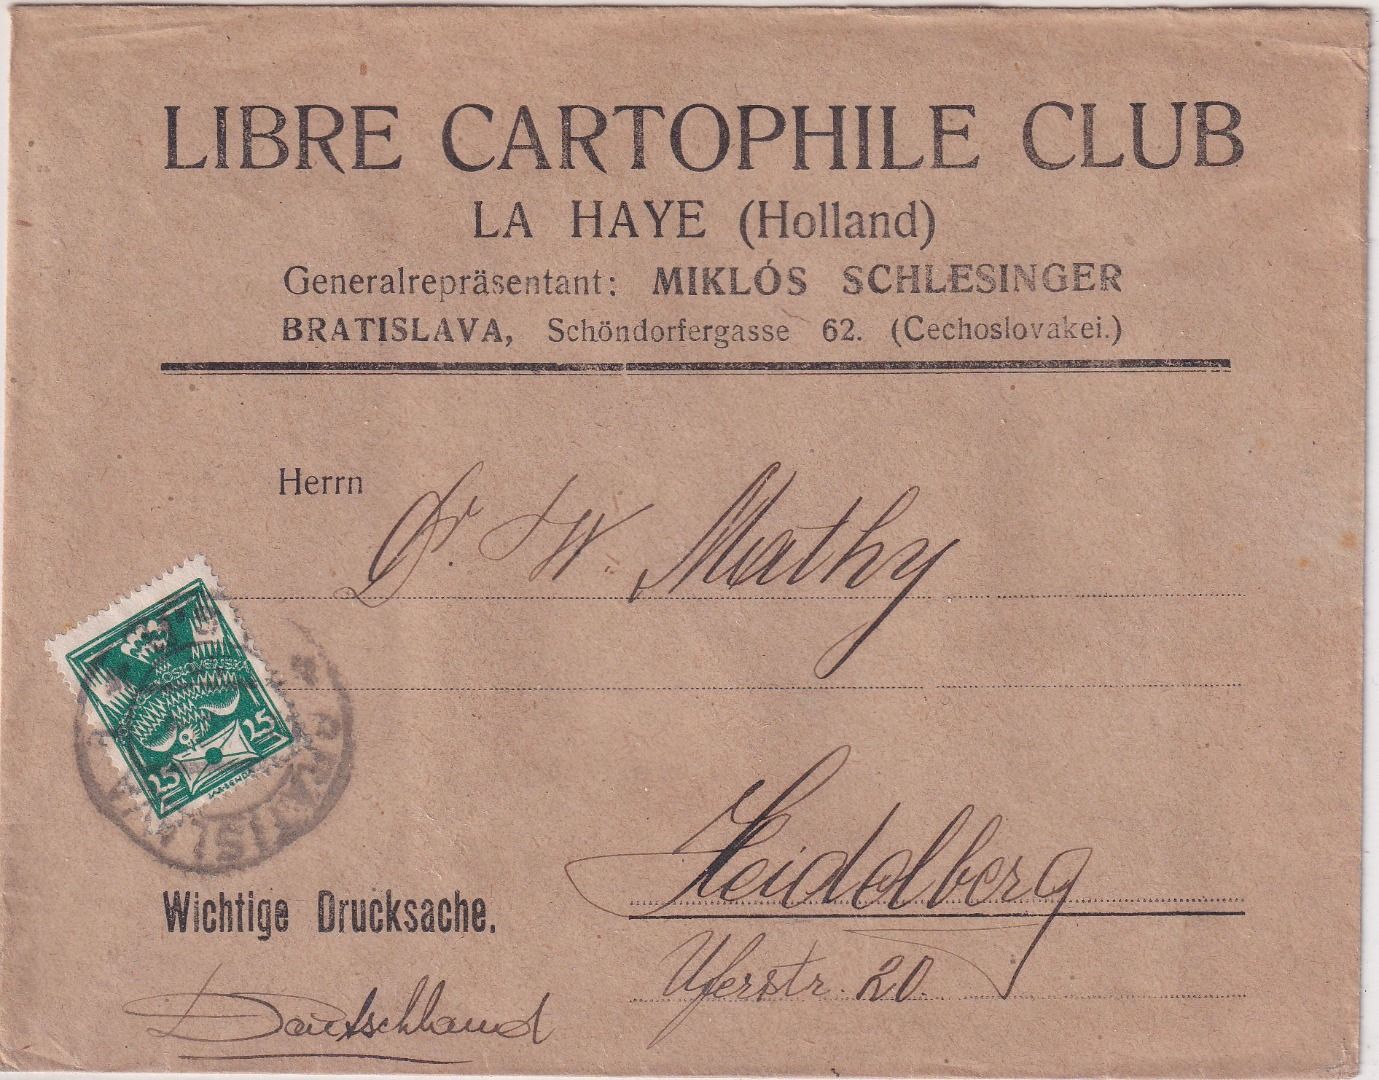 LIBRE CARTOPHILE CLUB
LA HAYE (Holland)
Generalrepräsentant: MIKLÓS SCHLESINGER
BRATISLAVA, Schöndorfergasse 62. (Cechoslovakei.)
Herrn Dr. W. Mathy
ČESKOSLOVENSKÁ
25 25
BRATISLAVA
Heidelberg
Wichtige Drucksache.
Uferstr. 20.
Deutschland